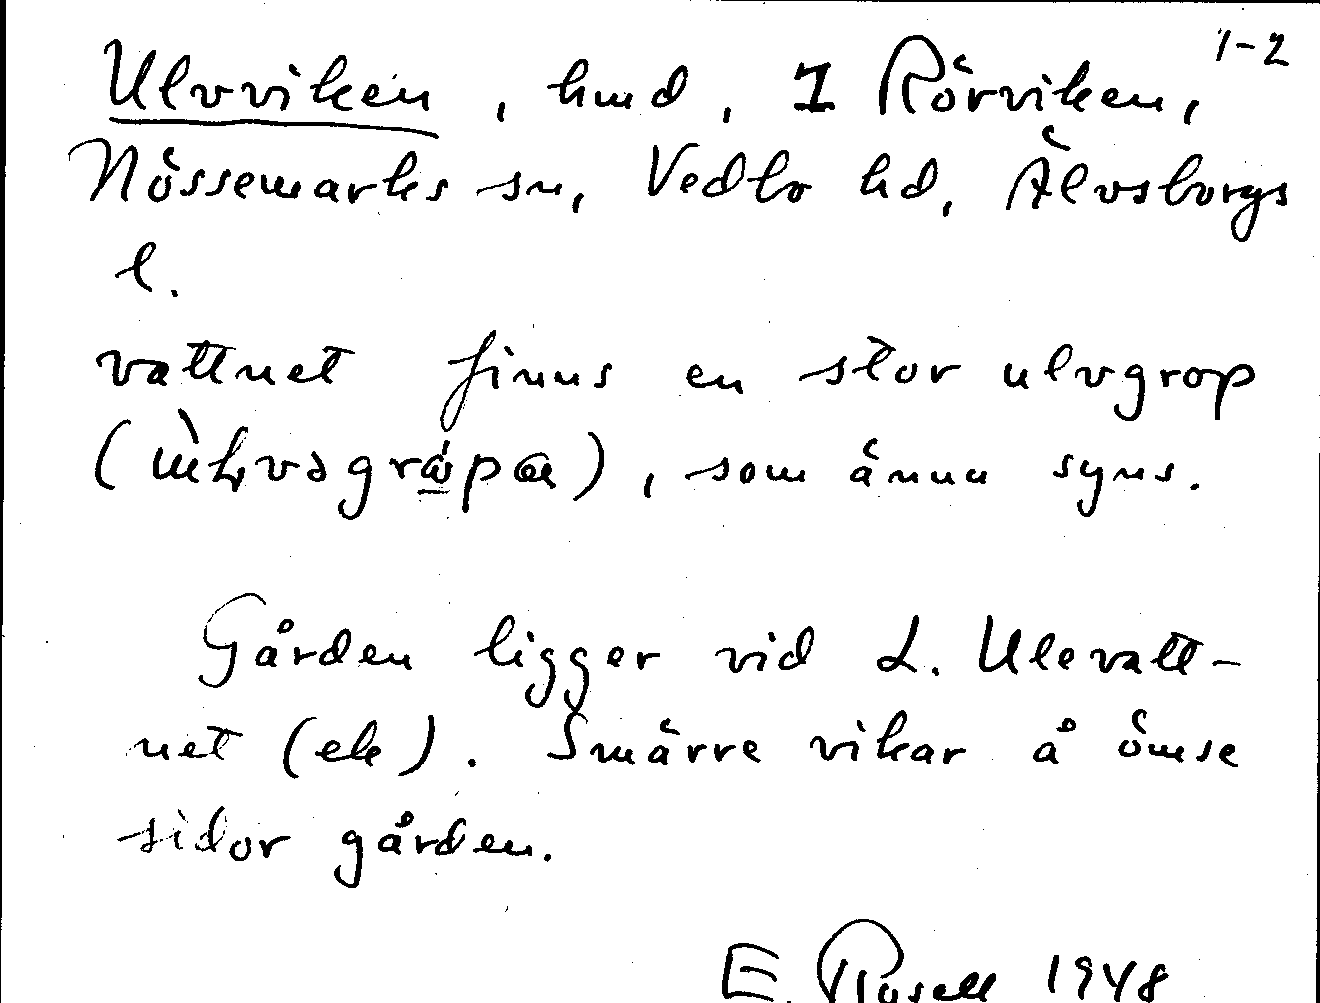 1-2
Ulvviken, hmd, 1 Rörviken,
Nössemarks sn, Vedbo hd, Älvsborgs
l.
vattnet finns en stor ulvgrop
som ännu syns.
Gården ligger vid L. Ulevatt-
net (ek). Smärre vikar å ömse
sidor gården.
E. Rosell 1948